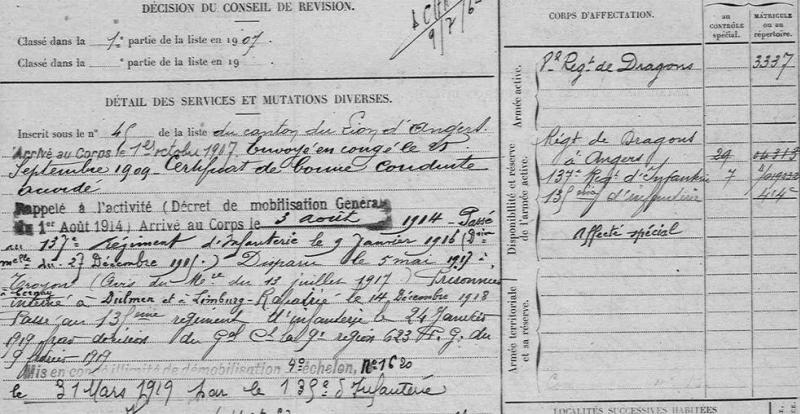 DÉCISION DU CONSEIL DE REVISION.
Classé dans la 1e partie de la liste en 1907
Classé dans la e partie de la liste en 19
DÉTAIL DES SERVICES ET MUTATIONS DIVERSES.
Inscrit sous le n° 45 de la liste du canton du Lion d'Angers.
Arrivé au Corps le 1er octobre 1907. Envoyé en congé le 25
Septembre 1909. Certificat de bonne conduite
accordé
Rappelé à l'activité (Décret de mobilisation Générale
du 1er Août 1914) Arrivé au Corps le 3 août 1914 - Passé
au 137e Régiment d'Infanterie le 9 Janvier 1916 (
du 27 Décembre 1915) Disparu le 5 mai 1917 à
Troyon (Avis du du 13 juillet 1917) Prisonnier
interné à Dulmen et à Limburg - Rapatrié le 14 Décembre 1918
Passé au 135ème régiment d'infanterie le 24 Janvier
1919 par décision du Gal Ct la 9e région 623 du
9 février 1919
Mis en congé illimité de démobilisation 4e échelon, N° 1620
le 31 Mars 1919 par le 135e d'Infanterie
CORPS D'AFFECTATION.
au CONTRÔLE spécial.
MATRICULE ou au répertoire.
Armée active.
Régt de Dragons 3337
Disponibilité et réserve de l'armée active.
Régt de Dragons
à Angers 29
137e Régt d'Infanterie 7
135ème d'infanterie 414
Affecté spécial
Armée territoriale et sa réserve.
LOCALITÉS SUCCESSIVES HABITÉES